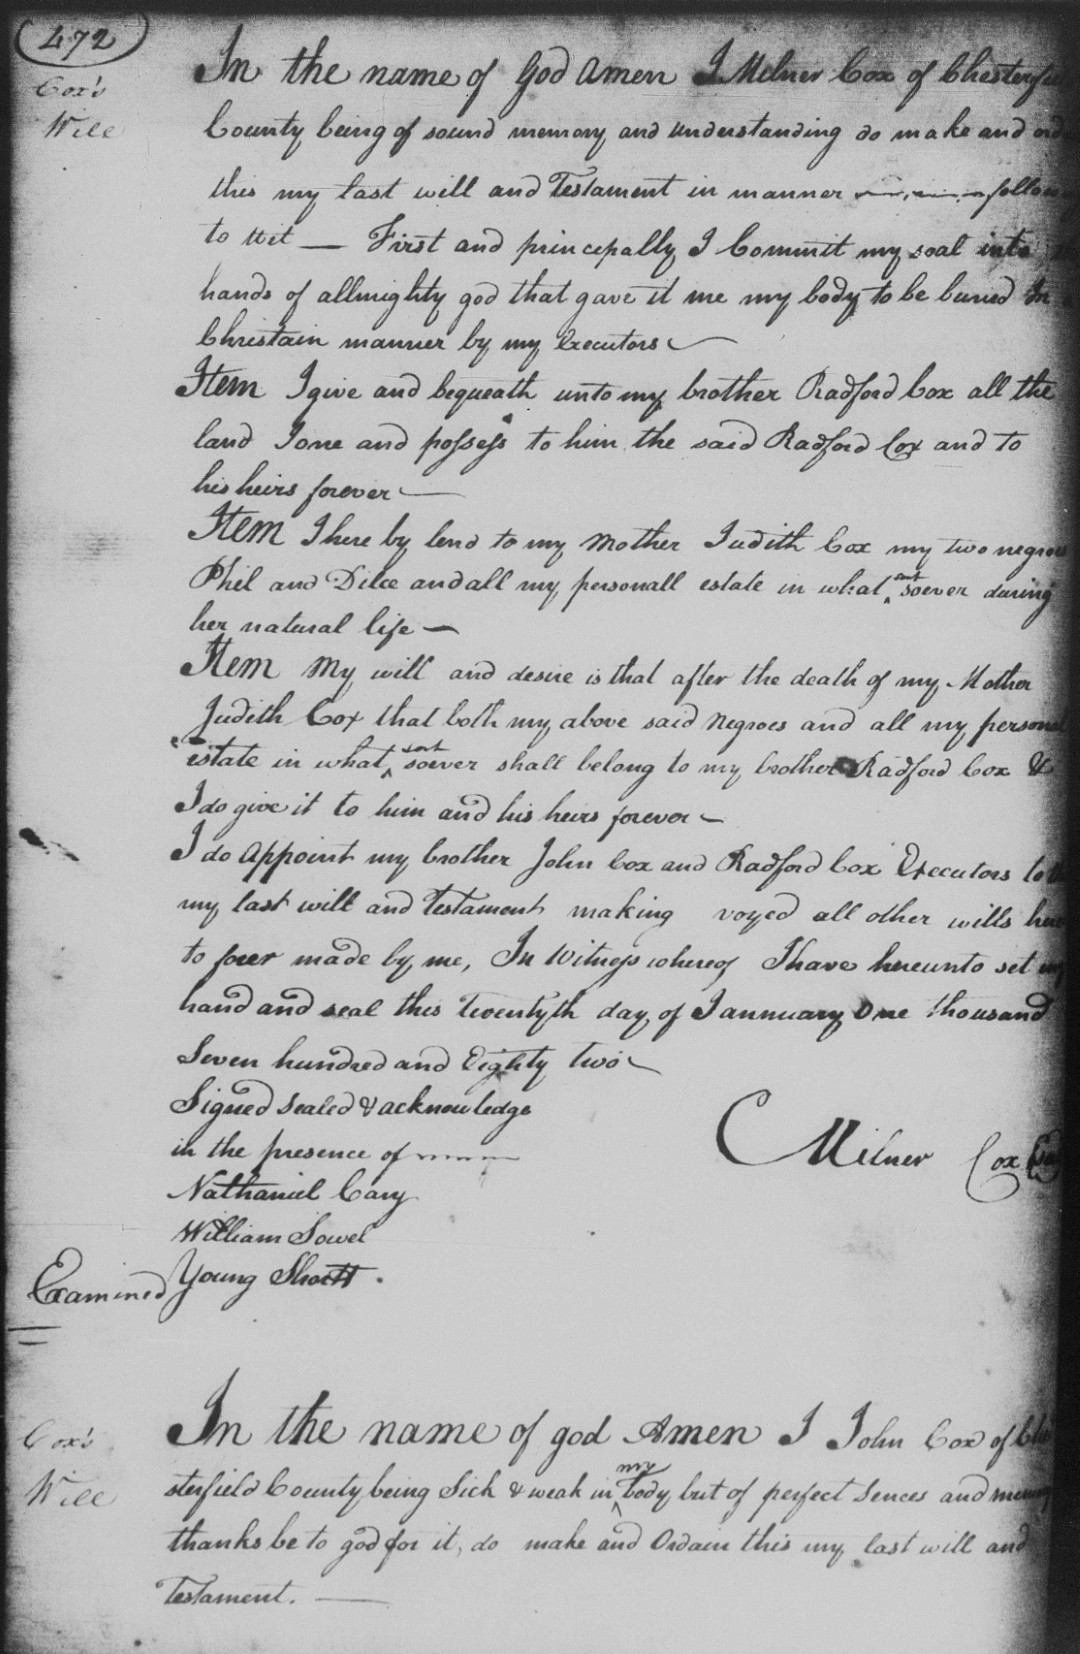 472
Cox's
Will
In the name of God Amen I Milner Cox of Chesterfiel
County being of sound memory and understanding do make and ord
this my last will and Testament in manner follow
to wit — First and princepally I Commit my soal into
hands of allmighty god that gave it me my body to be buried In
Christain manner by my Executors
Item I give and bequeath unto my brother Radford Cox all the
land I one and possess to him the said Radford Cox and to
his heirs forever —
Item I here by lend to my Mother Judith Cox my two negroes
Phil and Dilce and all my personall estate in what sort soever during
her natural life —
Item My will and desire is that after the death of my Mother
Judith Cox that both my above said Negroes and all my personal
estate in what sort soever shall belong to my brother Radford Cox &
I do give it to him and his heirs forever —
I do Appoint my brother John Cox and Radford Cox Executors to
my last will and Testament making voyed all other wills here
to foer made by me, In Witness whereof I have hereunto set my
hand and seal this Twentyth day of Jannuary One thousand
Seven hundred and Eighty two
Signed Sealed & acknowledge
in the presence of
Milner Cox
Nathaniel Cary
William Sowel
Young Shortt.
Examined
Cox's
Will
In the name of god Amen I John Cox of Che
sterfield County being Sick & weak in my body but of perfect Sences and memory
thanks be to god for it, do make and Ordain this my last will and
Testament. —